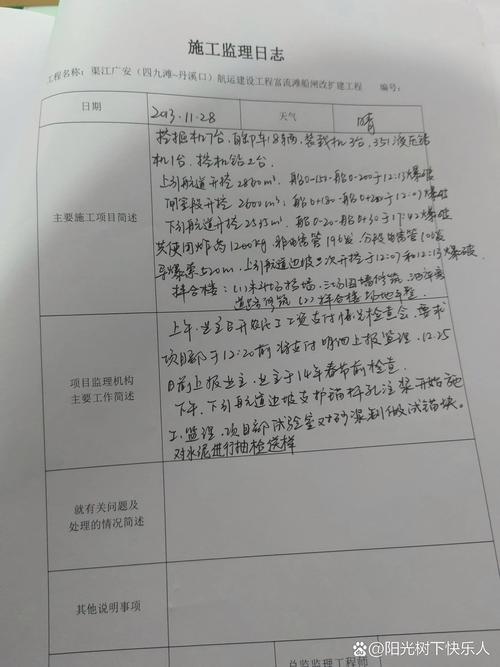 施工监理日志
工程名称：渠江广安（四九滩~丹溪口）航运建设工程富流滩船闸改扩建工程 编号：
日期 2013.11.28 天气 晴
主要施工项目简述
挖掘机7台，自卸车18辆，装载机3台，351液压钻
机1台，
上引航道开挖2860m³，船0-150-船0-200于12:13爆破
闸室段开挖2600m³，船0+180-船0+200于12:07爆破
下引航道开挖2543m³，船0-20-船0+30于17:42爆破
共使用炸药1200kg，非电雷管196发，
导爆索520m，上引航道边坡二次开挖于12:07和12:13爆破
拌合楼：(1)料场挡墙、围墙修筑，
道路修筑 (2)拌合楼场地平整
项目监理机构
主要工作简述
上午，业主召开农民工工资支付情况检查会，要求
项目部于12:20前将支付明细上报监理，12.25
日前上报业主，业主于14年春节前检查。
下午，下引航道边坡支护锚杆孔注浆开始施
工，监理、项目部试验室对砂浆制做试锚块。
对水泥进行抽检送样
就有关问题及
处理的情况简述
其他说明事项
总监监理工程师
@阳光树下快乐人